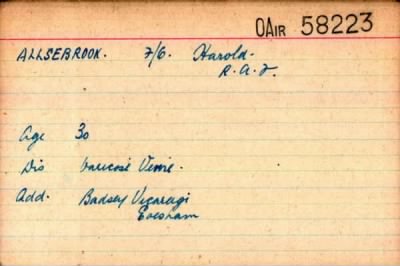 OAIR 58223
ALLSEBROOK. 7/6. Harold.
R.A.F.
Age 30
Dis Varicose Veins.
Add. Badsey Vicarage
Evesham